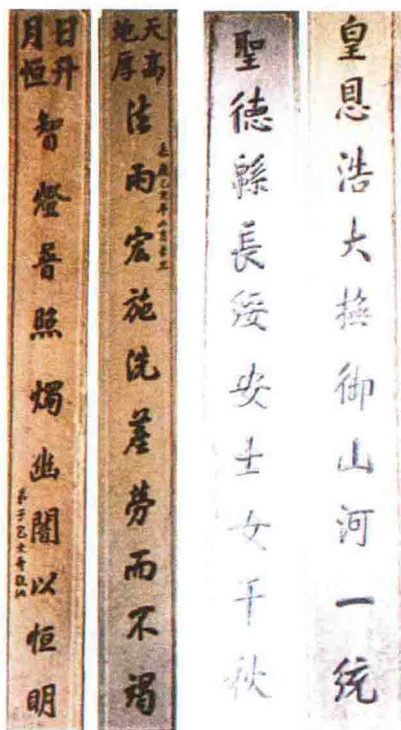 皇恩浩大撫御山河一統
聖德緜長綏安士女千秋
天高地厚
法雨宏施洗塵勞而不竭
日升月恒
智燈普照燭幽闇以恒明